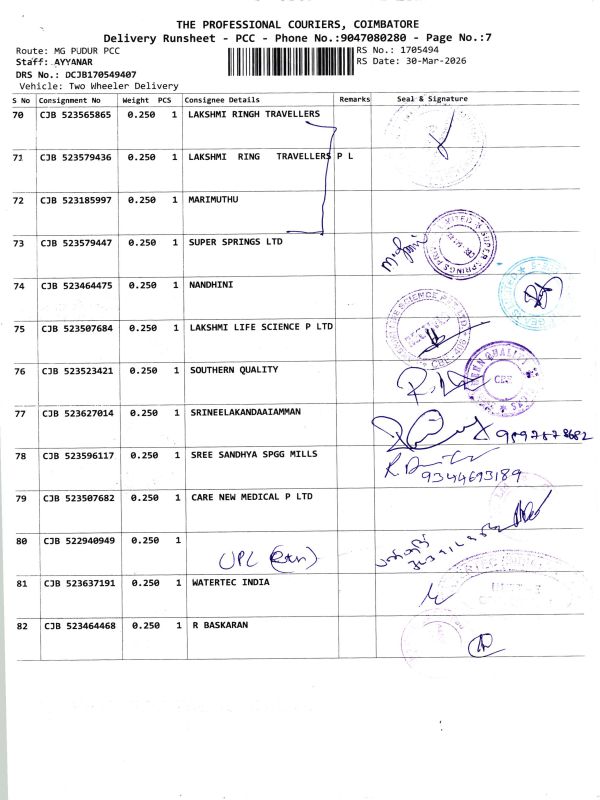 THE PROFESSIONAL COURIERS, COIMBATORE
Delivery Runsheet - PCC - Phone No.:9047080280 - Page No.:7
Route: MG PUDUR PCC RS No.: 1705494
Staff: AYYANAR RS Date: 30-Mar-2026
DRS No.: DCJB170549407
Vehicle: Two Wheeler Delivery
S No Consignment No Weight PCS Consignee Details Remarks Seal & Signature
70 CJB 523565865 0.250 1 LAKSHMI RINGH TRAVELLERS
71 CJB 523579436 0.250 1 LAKSHMI RING TRAVELLERS P L
72 CJB 523185997 0.250 1 MARIMUTHU
73 CJB 523579447 0.250 1 SUPER SPRINGS LTD
74 CJB 523464475 0.250 1 NANDHINI
75 CJB 523507684 0.250 1 LAKSHMI LIFE SCIENCE P LTD
76 CJB 523523421 0.250 1 SOUTHERN QUALITY
77 CJB 523627014 0.250 1 SRINEELAKANDAAIAMMAN
78 CJB 523596117 0.250 1 SREE SANDHYA SPGG MILLS
9344693189
79 CJB 523507682 0.250 1 CARE NEW MEDICAL P LTD
80 CJB 522940949 0.250 1
UPL (Rtn)
81 CJB 523637191 0.250 1 WATERTEC INDIA
82 CJB 523464468 0.250 1 R BASKARAN